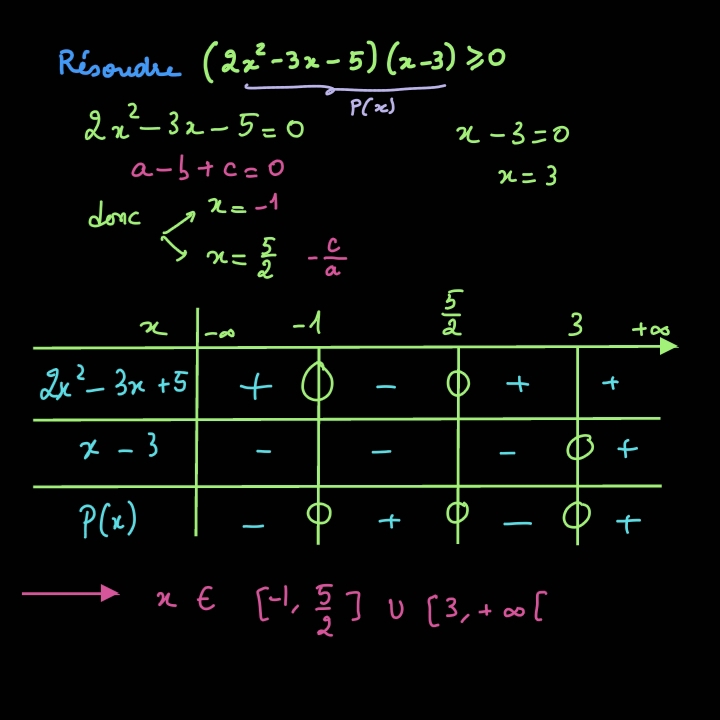 Résoudre (2x²-3x-5)(x-3)⩾0
P(x)
2x²-3x-5=0
a-b+c=0
donc x=-1
x=5/2 -c/a
x-3=0
x=3
x -∞ -1 5/2 3 +∞
2x²-3x+5 + 0 - 0 + +
x-3 - - - 0 +
P(x) - 0 + 0 - 0 +
x ∈ [-1, 5/2] ∪ [3, +∞[